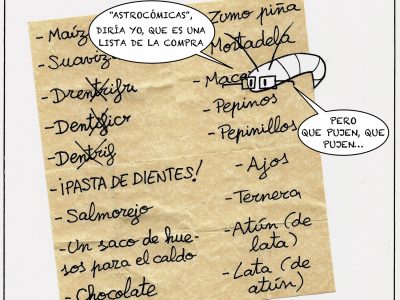 "ASTROCÓMICAS",
DIRÍA YO, QUE ES UNA
LISTA DE LA COMPRA
- Maíz
- Suaviz
- Dentificr
- Dentrif
- ¡PASTA DE DIENTES!
- Salmorejo
- Un saco de hue-
sos para el caldo
- Chocolate
Zumo piña
Mortadela
- Maca
- Pepinos
- Pepinillos
- Ajos
- Ternera
- Atún (de
lata)
- Lata (de
atún)
PERO
QUE PUJEN, QUE
PUJEN...